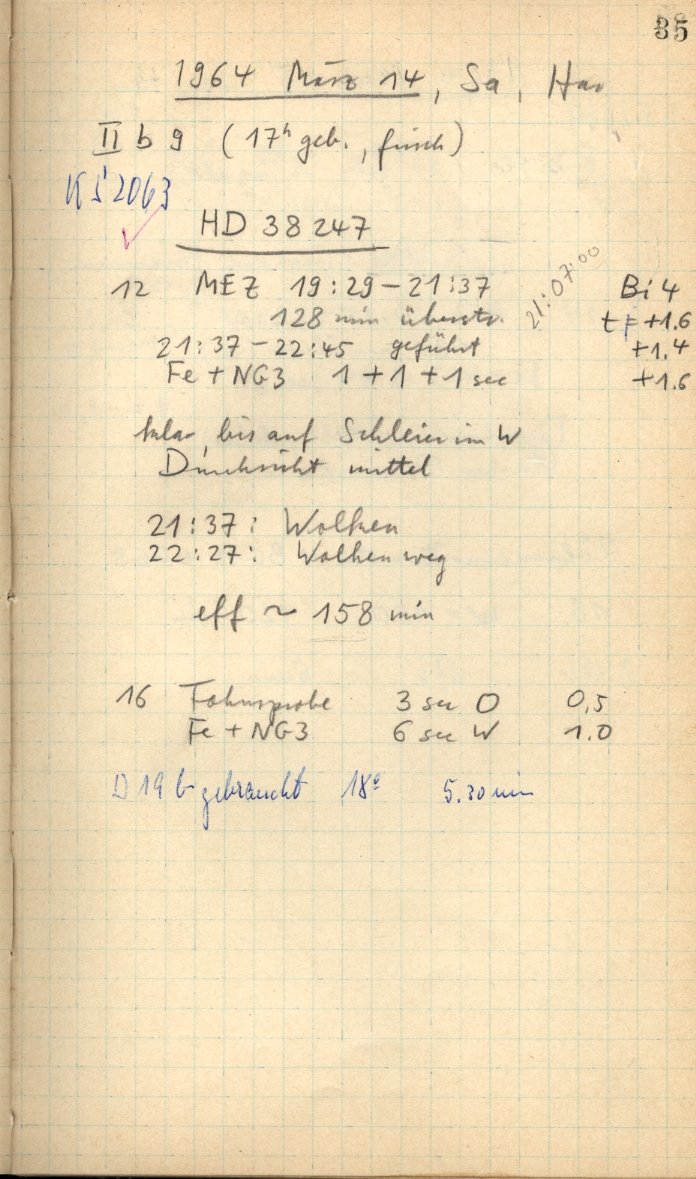 35
1964 März 14, Sa, Hav
II b 9 (17h geb., frisch)
KS 2063
HD 38247
12 MEZ 19:29 – 21:37 Bi 4
21:07:00
128 min überstr. +1.6
21:37 – 22:45 geführt +1.4
Fe + NG3 1 + 1 + 1 sec +1.6
klar, bis auf Schleier im W
Durchsicht mittel
21:37: Wolken
22:27: Wolken weg
eff ~ 158 min
16 Fokusprobe 3 sec O 0,5
Fe + NG3 6 sec W 1.0
D 19 b gebraucht 18° 5.30 min